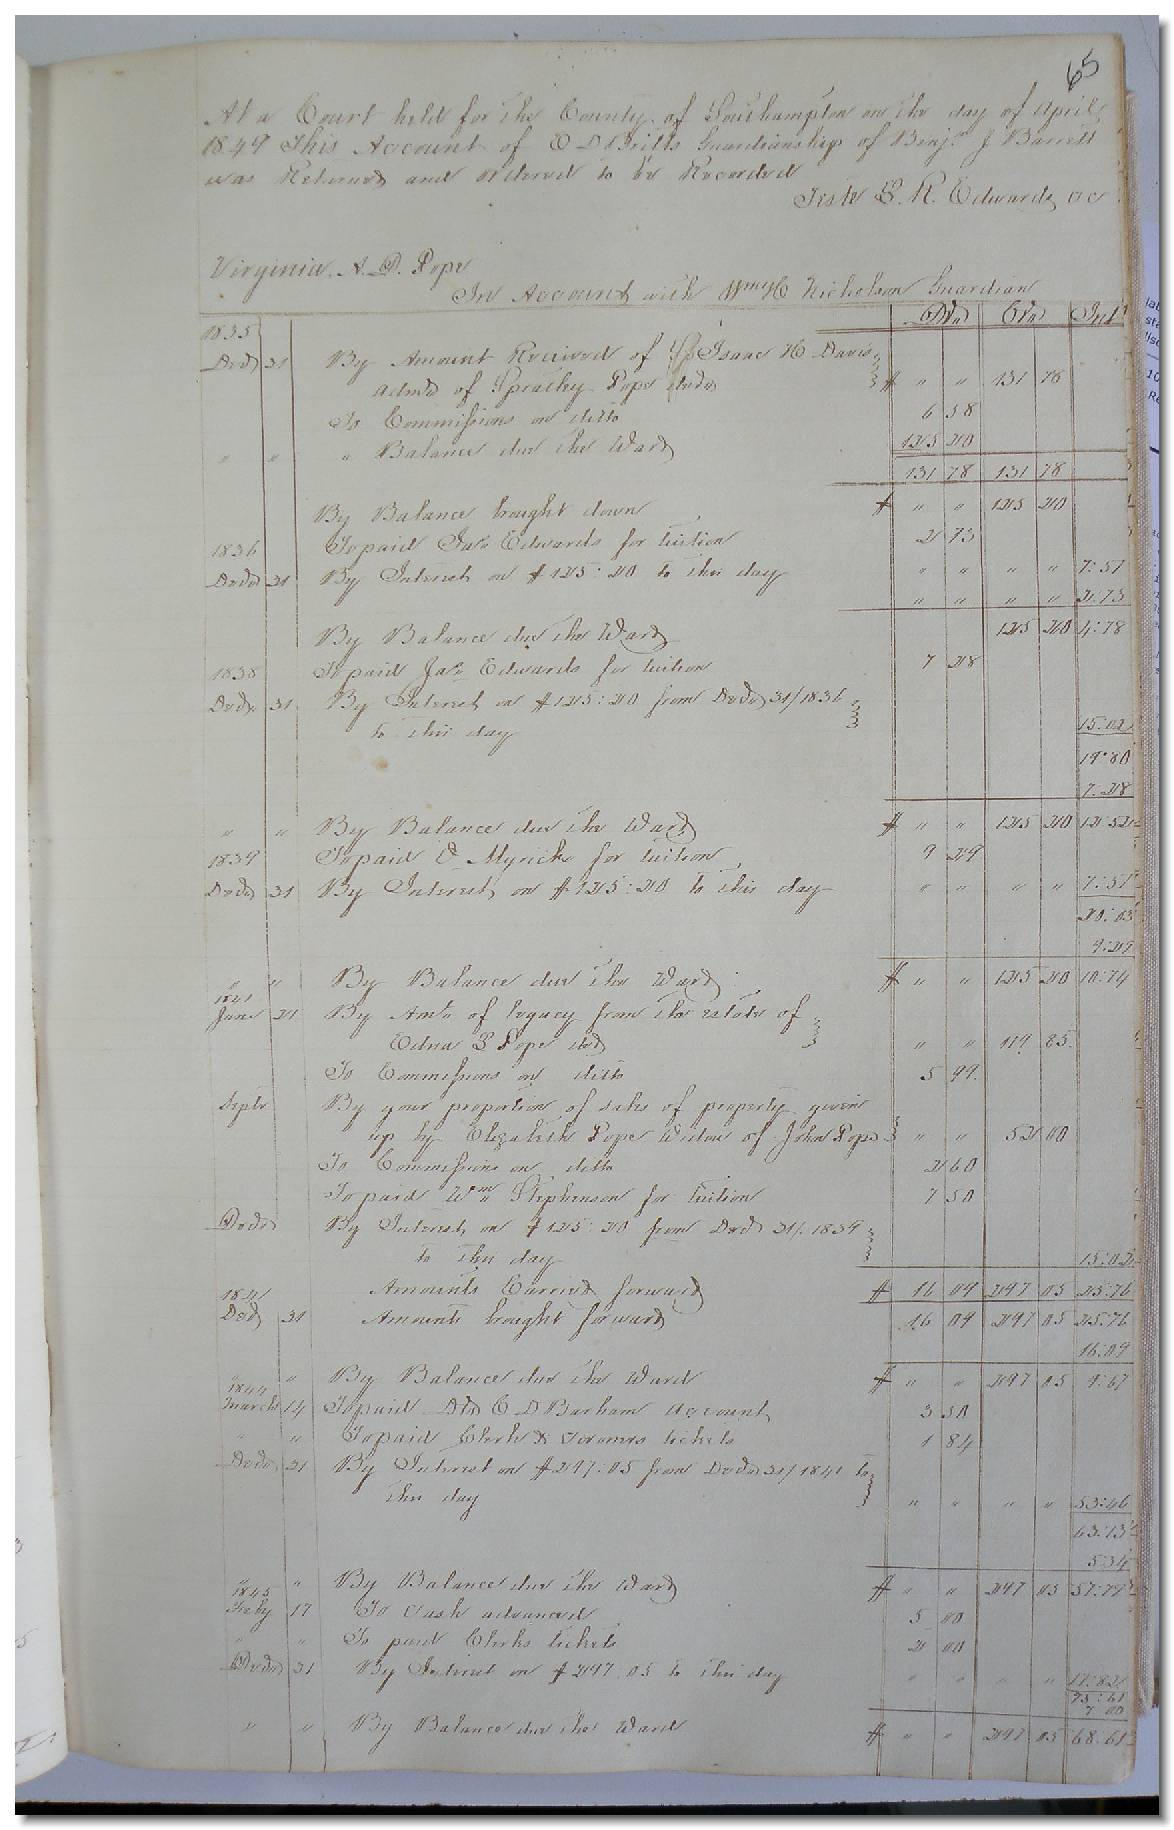 65
At a Court held for the County of Southampton on the day of April
1849 This Account of Guardianship of Benjn J Barrett
was Returned and ordered to be Recorded
Teste L. R. Edwards cc
Virginia A. P. Pope
In Account with Nicholson Guardian
Dr Cr Int
1835
Decr 31 By Amount Received of Isaac H Davis
admr of Pope decd $ " " 131 78
To Commissions on ditto 6 58
" " " Balance due the Ward 125 20
131 78 131 78
By Balance brought down $ " " 125 20
1836 To paid Jas Edwards for tuition 2 73
Decr 31 By Interest on $125:20 to this day " " " " 7:51
" " " " 2.73
By Balance due the Ward 125 20 4:78
1838 To paid Jas Edwards for tuition 7 28
Decr 31 By Interest on $125:20 from Decr 31/1836
to this day 15:02
19:80
7:28
" " By Balance due the Ward $ " " 125 20 12:52
1839 To paid Myrick for tuition 9 29
Decr 31 By Interest on $125:20 to this day " " " " 7:51
20:03
9:29
" " By Balance due the Ward $ " " 125 20 10:74
1841
June 21 By Amt of legacy from the estate of
Edna Pope decd " " 119 85
To Commissions on ditto 5 99
Septr By your proportion of sales of property given
up by Elizabeth Pope Widow of John Pope " " 52 00
To Commissions on ditto 2 60
To paid Wm Stephenson for tuition 7 50
Decr By Interest on $125:20 from Decr 31/1839
to this day 15:02
Amounts Carried forward $ 16 09 297 05 25:76
1841
Decr 31 Amounts brought forward 16 09 297 05 25:76
16:09
" " By Balance due the Ward $ " " 297 05 9:67
1844
March 14 To paid C D Barham Account 3 50
" " To paid Clerk & tickets 1 84
Decr 31 By Interest on $297:05 from Decr 31/1841 to
this day " " " " 53:46
63:13
5:34
" " By Balance due the Ward $ " " 297 05 57:79
1845
Feby 17 To Cash advanced 5 00
" " To paid Clerks tickets 2 00
Decr 31 By Interest on $297.05 to this day " " " " 17:82
75:61
7 00
" " By Balance due the Ward $ " " 297 05 68.61